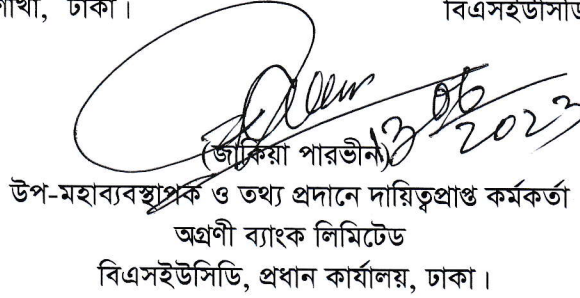 শাখা, ঢাকা। বিএসইউসিডি
13 06 2023
(জাকিয়া পারভীন)
উপ-মহাব্যবস্থাপক ও তথ্য প্রদানে দায়িত্বপ্রাপ্ত কর্মকর্তা
অগ্রণী ব্যাংক লিমিটেড
বিএসইউসিডি, প্রধান কার্যালয়, ঢাকা।